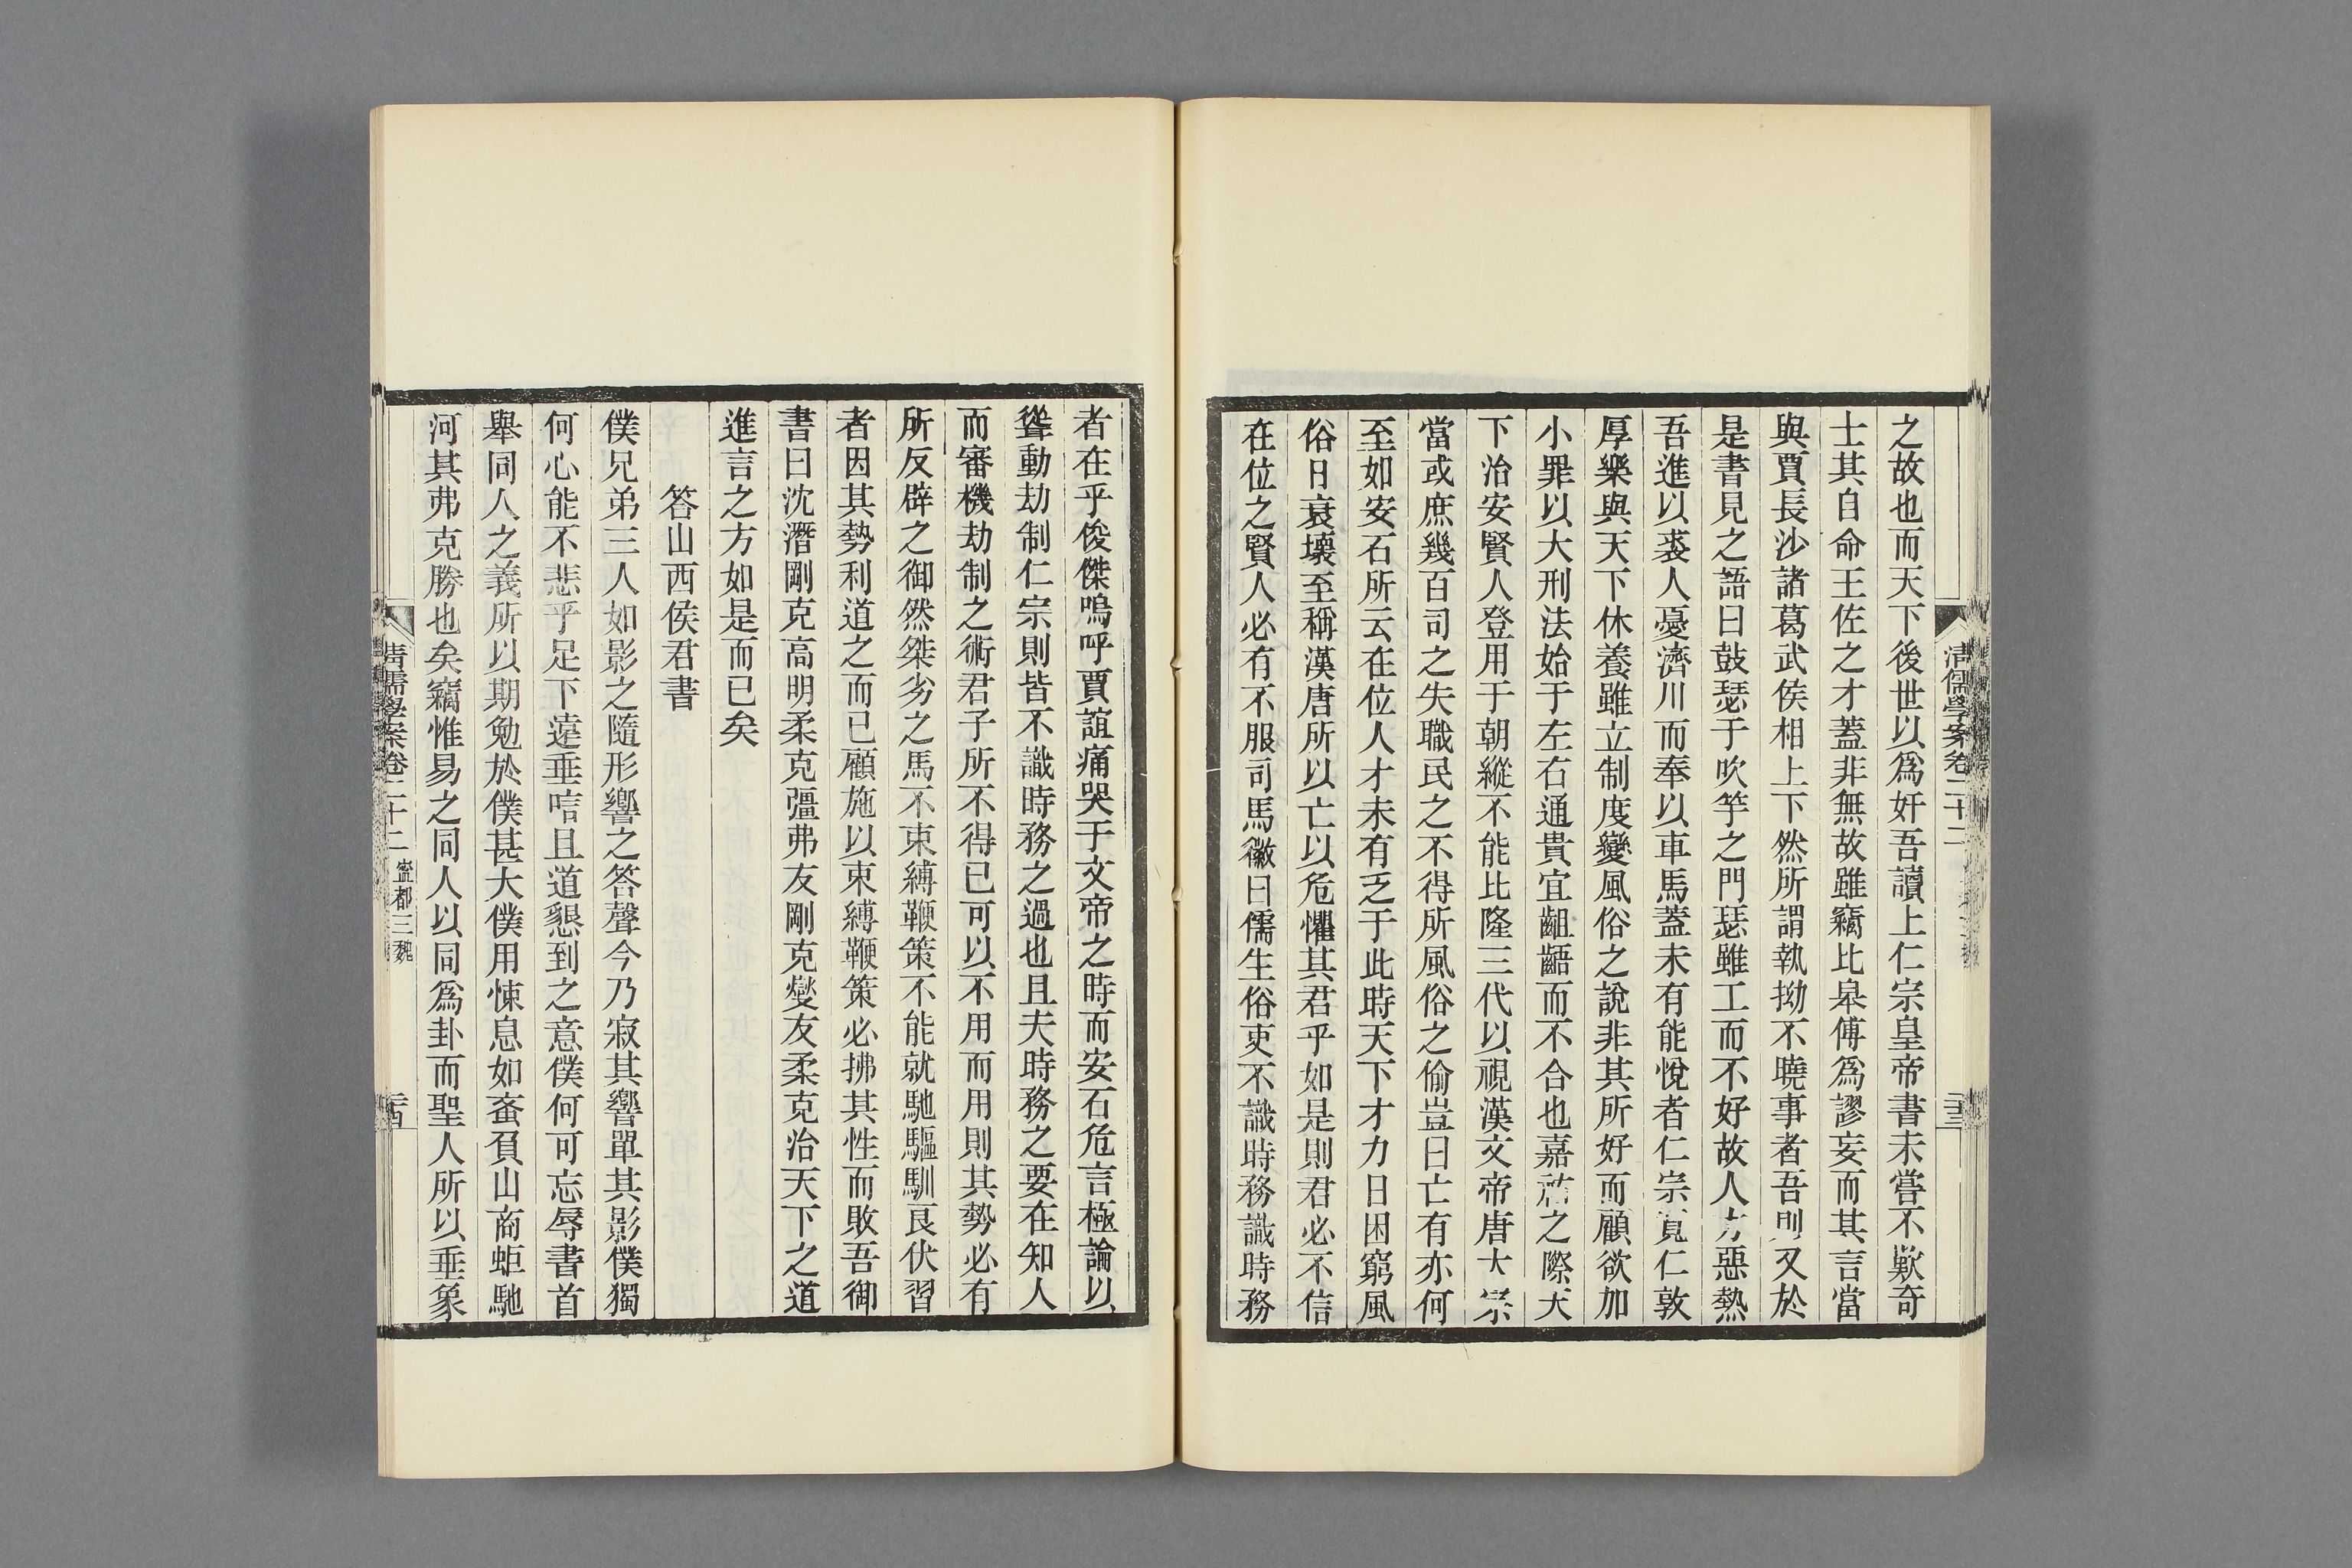 清儒學案卷二十二
之故也而天下後世以爲奸吾讀上仁宗皇帝書未嘗不歎奇
士其自命王佐之才蓋非無故雖竊比皋傅爲謬妄而其言當
與賈長沙諸葛武侯相上下然所謂執拗不曉事者吾則又於
是書見之語曰鼓瑟于吹竽之門瑟雖工而不好故人方惡熱
吾進以裘人憂濟川而奉以車馬蓋未有能悅者仁宗寬仁敦
厚樂與天下休養雖立制度變風俗之說非其所好而顧欲加
小罪以大刑法始于左右通貴宜齟齬而不合也嘉祐之際天
下治安賢人登用于朝縱不能比隆三代以視漢文帝唐太宗
當或庶幾百司之失職民之不得所風俗之偷豈曰亡有亦何
至如安石所云在位人才未有乏于此時天下才力日困窮風
俗日衰壞至稱漢唐所以亡以危懼其君乎如是則君必不信
在位之賢人必有不服司馬徽曰儒生俗吏不識時務識時務
者在乎俊傑嗚呼賈誼痛哭于文帝之時而安石危言極論以
聳動劫制仁宗則皆不識時務之過也且夫時務之要在知人
而審機劫制之術君子所不得已可以不用而用則其勢必有
所反辟之御然桀劣之馬不束縛鞭策不能就馳驅馴良伏習
者因其勢利道之而已顧施以束縛鞭策必拂其性而敗吾御
書曰沈潛剛克高明柔克彊弗友剛克燮友柔克治天下之道
進言之方如是而已矣
答山西侯君書
僕兄弟三人如影之隨形響之答聲今乃寂其響單其影僕獨
何心能不悲乎足下遠垂唁且道懇到之意僕何可忘辱書首
舉同人之義所以期勉於僕甚大僕用悚息如蚉負山商蚷馳
河其弗克勝也矣竊惟易之同人以同爲卦而聖人所以垂象
清儒學案卷二十二 寧都三魏